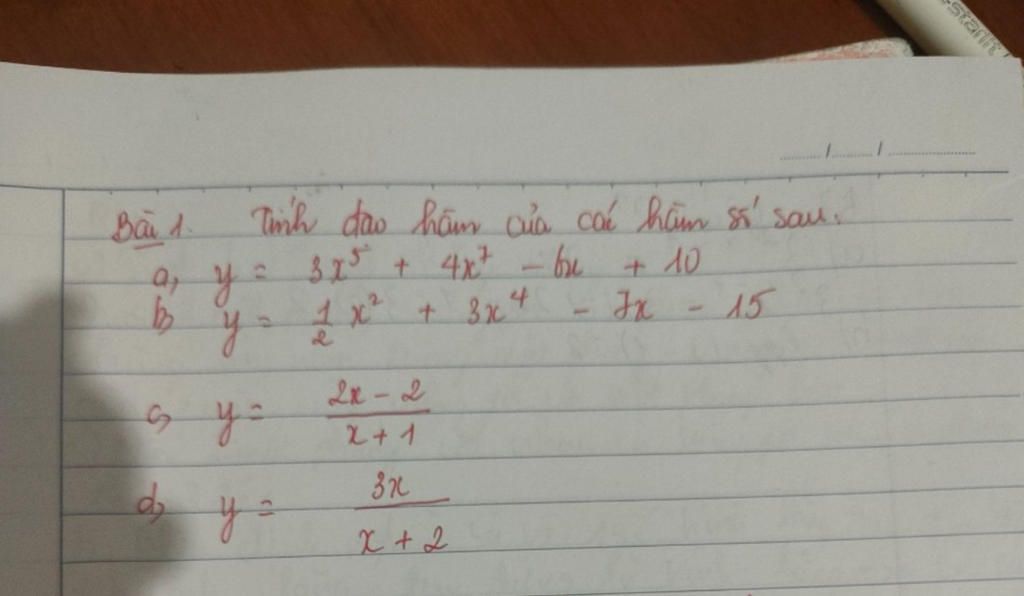 Bài 1. Tính đạo hàm của các hàm số sau.
a, y = 3x⁵ + 4x⁷ - 6x + 10
b, y = 1/2 x² + 3x⁴ - 7x - 15
c, y = (2x - 2)/(x + 1)
d, y = 3x/(x + 2)